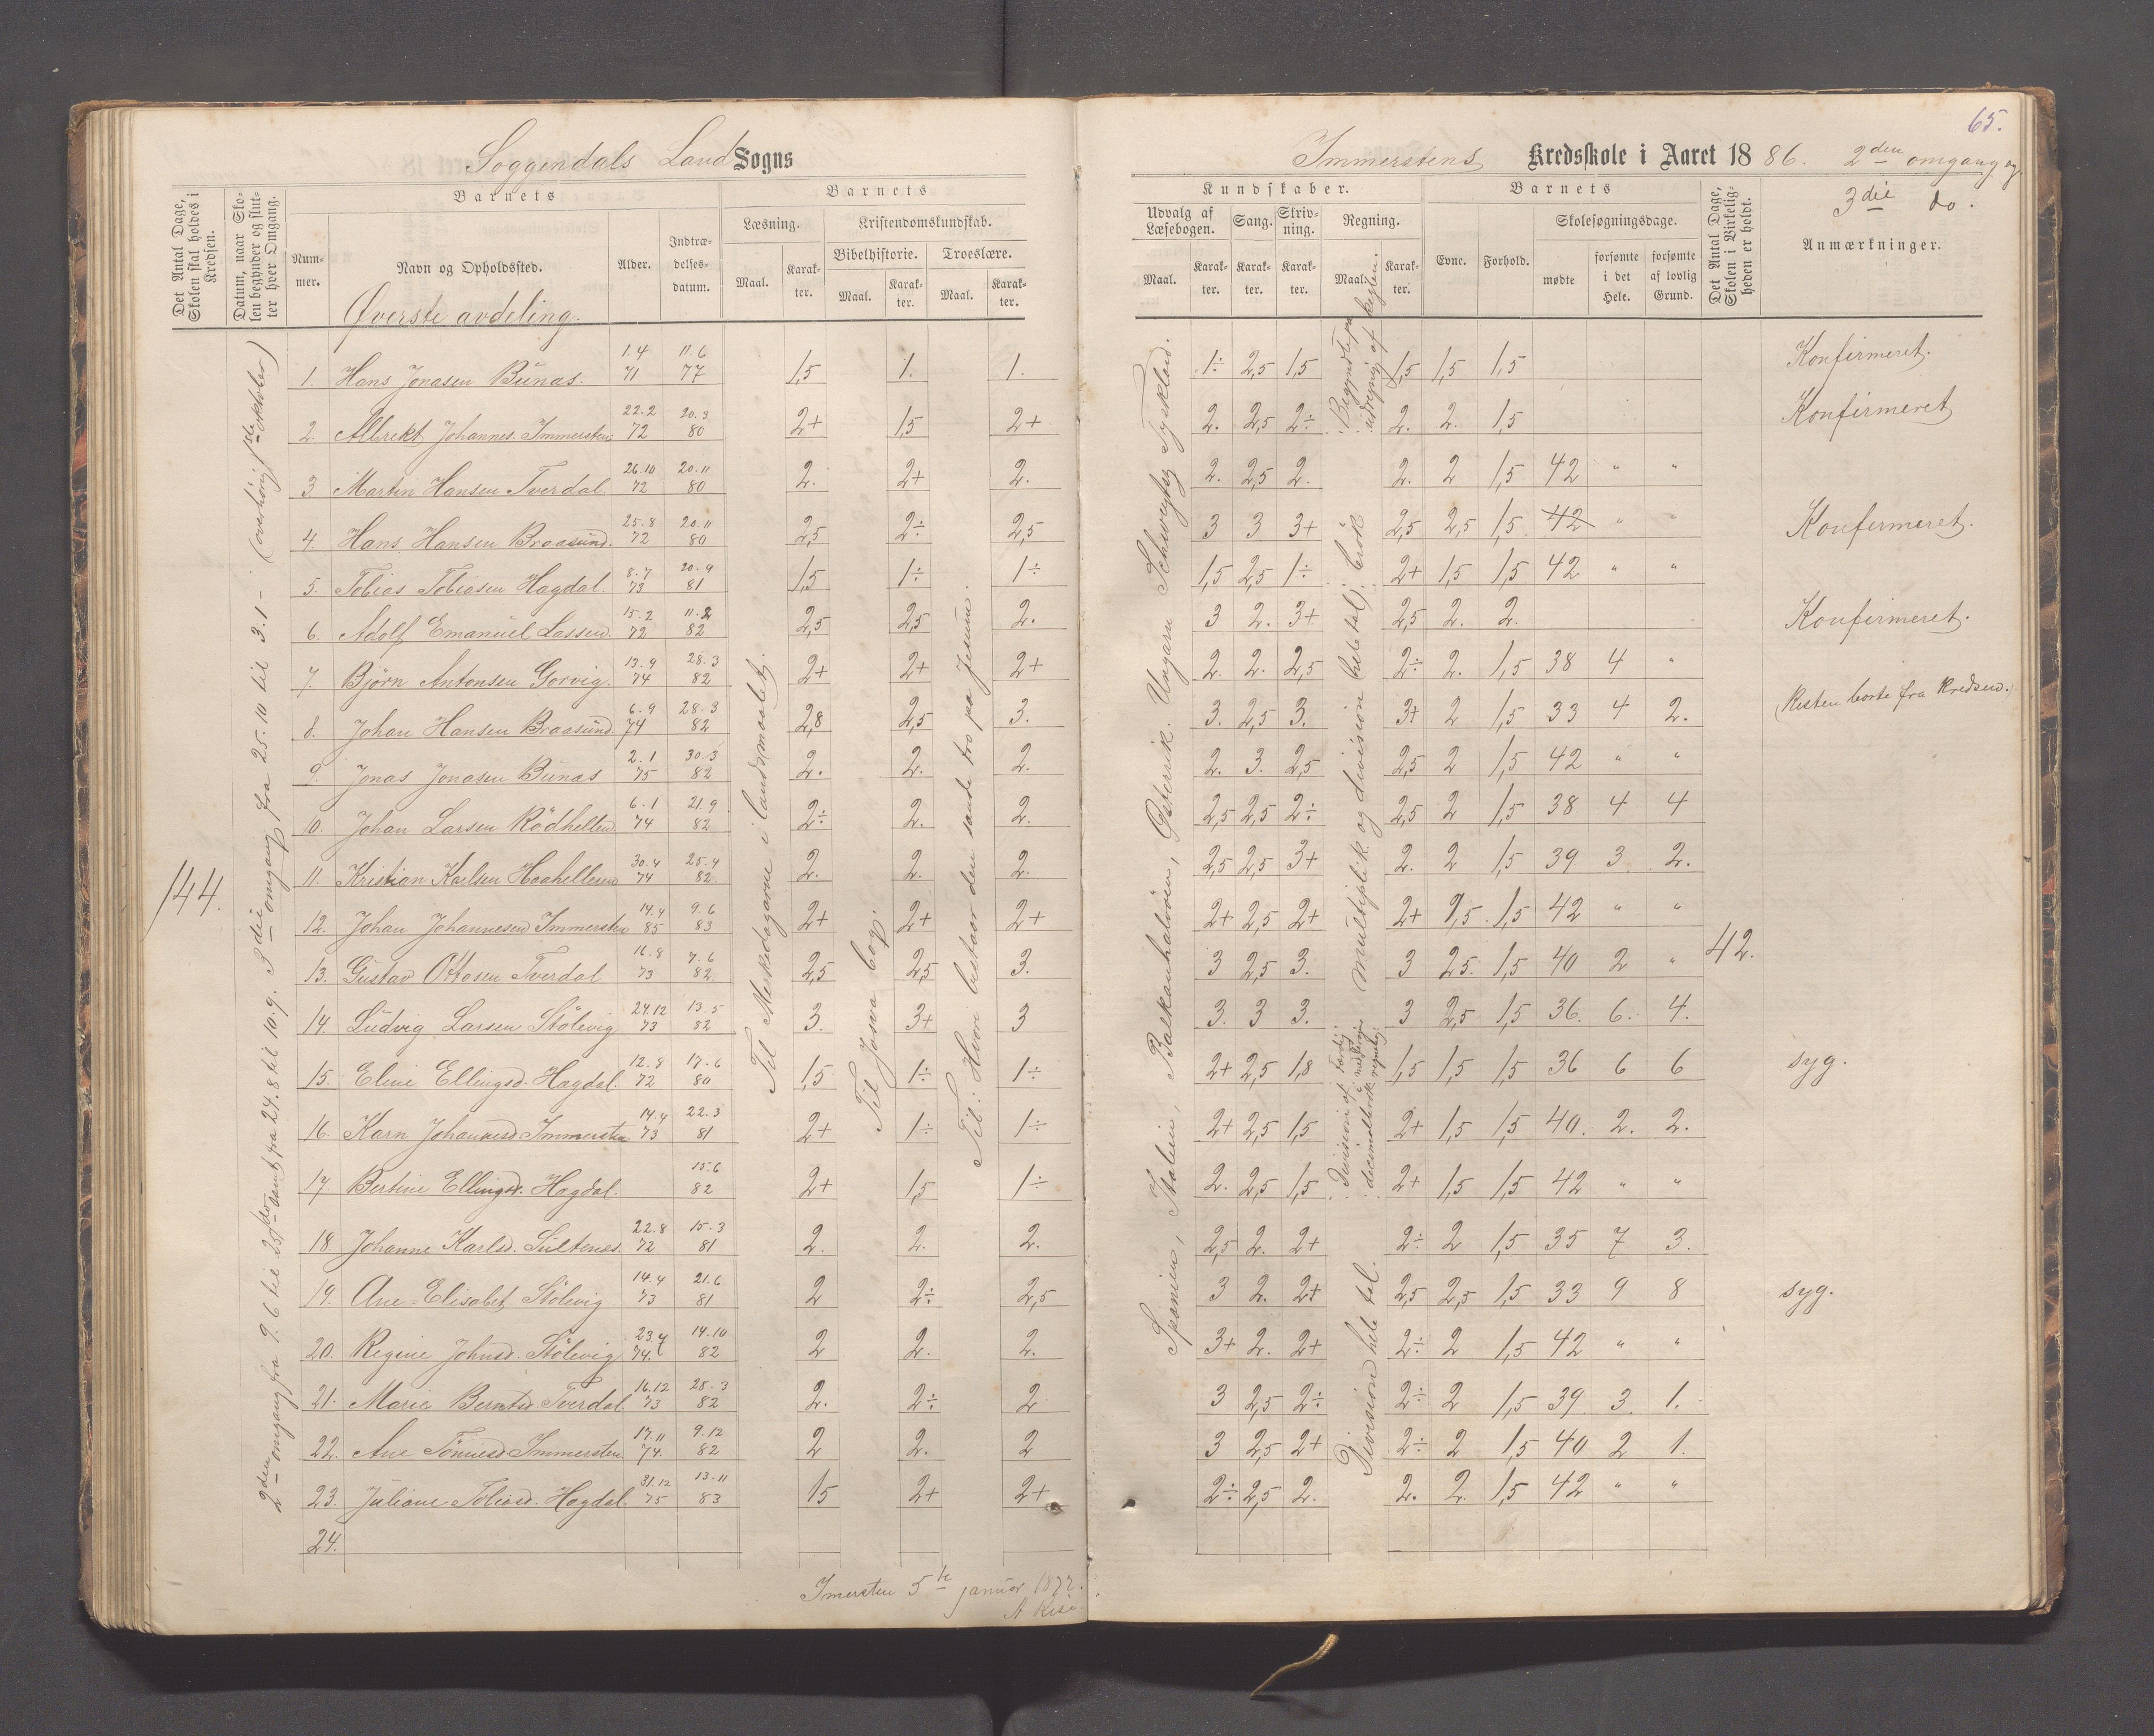 65.
Soggendals Land Sogns
Immerstens Kredsskole i Aaret 1886. 2den omgang og
3die do.
Det Antal Dage, Skolen skal holdes i Kredsen.
Datum, naar Skolen begynder og slutter hver Omgang.
Barnets
Nummer.
Navn og Opholdssted.
Alder.
Indtrædelsesdatum.
Barnets
Læsning.
Maal.
Karakter.
Kristendomskundskab.
Bibelhistorie.
Maal.
Karakter.
Troeslære.
Maal.
Karakter.
Kundskaber.
Udvalg af Læsebogen.
Maal.
Karakter.
Sang.
Karakter.
Skrivning.
Karakter.
Regning.
Maal.
Karakter.
Barnets
Evne.
Forhold.
Skolesøgningsdage.
mødte
forsømte i det Hele.
forsømte af lovlig Grund.
Det Antal Dage, Skolen i Virkeligheden er holdt.
Anmærkninger.
Øverste avdeling.
1. Hans Jonasen Bunas. 1.4 71 11.6 77 1,5 1. 1. 1÷ 2,5 1,5 1,5 1,5 1,5 Konfirmeret.
2. Albrekt Johannes. Immersten 22.2 72 20.3 80 2+ 1,5 2+ 2. 2,5 2÷ 2. 2. 1,5 Konfirmeret
3 Martin Hansen Tverdal 26.10 72 20.11 80 2. 2+ 2. 2. 2,5 2. 2. 2 1,5 42 " "
4. Hans Hansen Braasund. 25.8 72 20.11 80 2,5 2÷ 2,5 3 3 3+ 2,5 2,5 1,5 42 " " Konfirmeret.
5. Tobias Tobiasen Hagdal. 8.7 73 20.9 81 1,5 1÷ 1÷ 1,5 2,5 1÷ 2+ 1,5 1,5 42 " "
6. Adolf Emanuel Lassen. 15.2 72 11.2 82 2,5 2,5 2. 3 2. 3+ 2,5 2. 2. Konfirmeret.
7. Björn Antonsen Gorvig. 13.9 74 28.3 82 2+ 2+ 2+ 2. 2. 2,5 2÷ 2. 1,5 38 4 "
8. Johan Hansen Braasund 6.9 74 28.3 82 2,8 2,5 3. 3. 2,5 3. 3+ 2 1,5 33 4 2. (Resten borte fra kredsen.)
9. Jonas Jonasen Bunas 2.1 75 30.3 82 2. 2. 2. 2. 3. 2,5 2,5 2 1,5 42 " "
10. Johan Larsen Rödhellen. 6.1 74 21.9 82 2÷ 2. 2. 2,5 2,5 2÷ 2,5 2 1,5 38 4 4
11. Kristian Karlsen Haahelleren 30.4 74 25.4 82. 2. 2. 2. 2,5 2,5 3+ 2. 2 1,5 39 3. 2.
12. Johan Johannesen Immersten 14.4 85 9.6 83 2+ 2+ 2+ 2+ 2,5 2+ 2+ 1,5. 1,5 42 " "
13. Gustav Ottosen Tverdal 16.8 73 7.6 82 2,5 2,5 3. 3 2,5 3. 3 2,5. 1,5 40 2 "
14. Ludvig Larsen Stölevig 24.12 73 13.5 82 3. 3+ 3 3. 3 3. 3 2,5 1,5 36. 6. 4.
15. Eline Ellingsd. Hagdal. 12.8 72 17.6 80 1,5 1÷ 1÷ 2+ 2,5 1,8 1,5 1,5 1,5 36 6 6 syg.
16. Karn Johannesd Immersten 14.4 73 22.3 81 2+ 1÷ 1÷ 2+ 2,5 1,5 2+ 1,5 1,5 40. 2. 2.
17. Bertine Ellingsd. Hagdal. 15.6 82 2+ 1,5 1÷ 2. 2,5 1,5 2+ 1,5 1,5 42 " "
18. Johanne Karlsd. Sultenes. 22.8 72 15.3 81 2. 2. 2. 2,5 2. 2+ 2÷ 2 1,5 35 7 3.
19. Ane Elisabet Stölevig 14.4 73 21.6 81 2 2÷ 2,5 3 2. 2+ 2,5 2,5 1,5 33 9 8 syg.
20. Regine Johnsd. Stölevig 23.4 74. 14.10 82 2 2. 2. 3+ 2. 2+ 2÷ 2 1,5 42 " "
21. Marie Berntsd Tverdal. 16.12 73 28.3 82 2. 2÷ 2 3 2,5 2÷ 2÷ 2 1,5 39 3. 1.
22. Ane Tönnesd. Immersten 17.11 74. 9.12 82 2 2. 2 3 2,5 2+ 2÷ 2 1,5 40 2 1.
23. Juliane Tobiasd. Hagdal. 31.12 75 13.11 83 15 2+ 2+ 2÷ 2,5 2. 2. 2. 1,5 42 " "
24.
144.
2den omgang fra 9.6 til 25.
samt fra 24.8 til 10.9. 3die omgang fra 25.10 til 3.1 – (overhöring 1ste oktober)
Til Merkedagarne i landsmaalet.
Til Josva bog.
Til: Hvori bestaar den sande tro paa Jesum.
Spanien, Italien, Balkanhalvöen, Østerrik. Ungarn Schweytz Tyskland.
Begyndte paa udregning af keglen.
multiplik. og division (hele tal) i brøk
Division af
decimalbrøk
Division hele tal.
42.
Imersten 5te januar 1877.